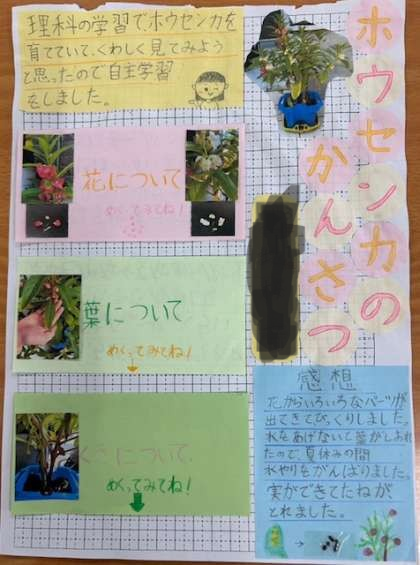 ホウセンカの
かんさつ
理科の学習で、ホウセンカを
育てていて、くわしく見てみよう
と思ったので自主学習
をしました。
花について
めくってみてね！
葉について
めくってみてね！
くきについて
めくってみてね！
感想
花からいろいろなパーツが
出てきてびっくりしました。
水をあげないと葉がしおれ
たので、夏休みの間
水やりをがんばりました。
実ができてたねが
とれました。